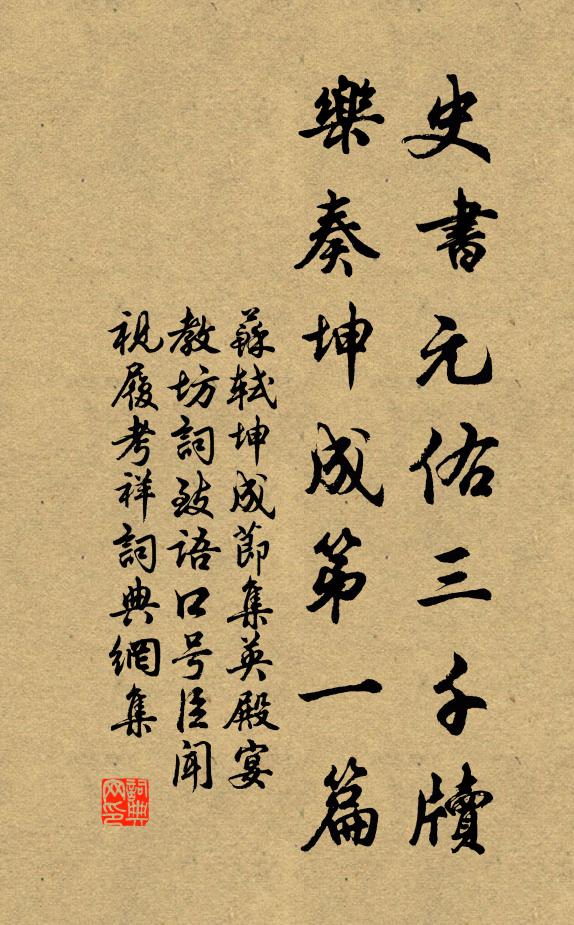 史書元佑三千牘
樂奏坤成第一篇
蘇軾坤成節集英殿宴
教坊詞致語口号臣聞
視履考祥詞典網集
詞典网印